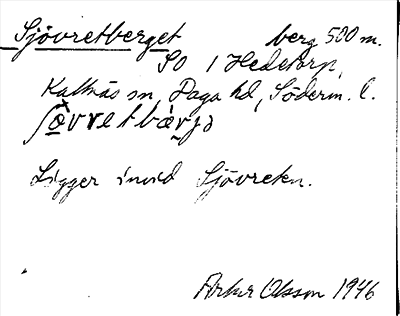 Sjövretberget berg 500 m.
SO / Hedetorp,
Kattnäs sn Daga hd, Söderm. l.
Ligger invid Sjövreten.
Artur Olsson 1946